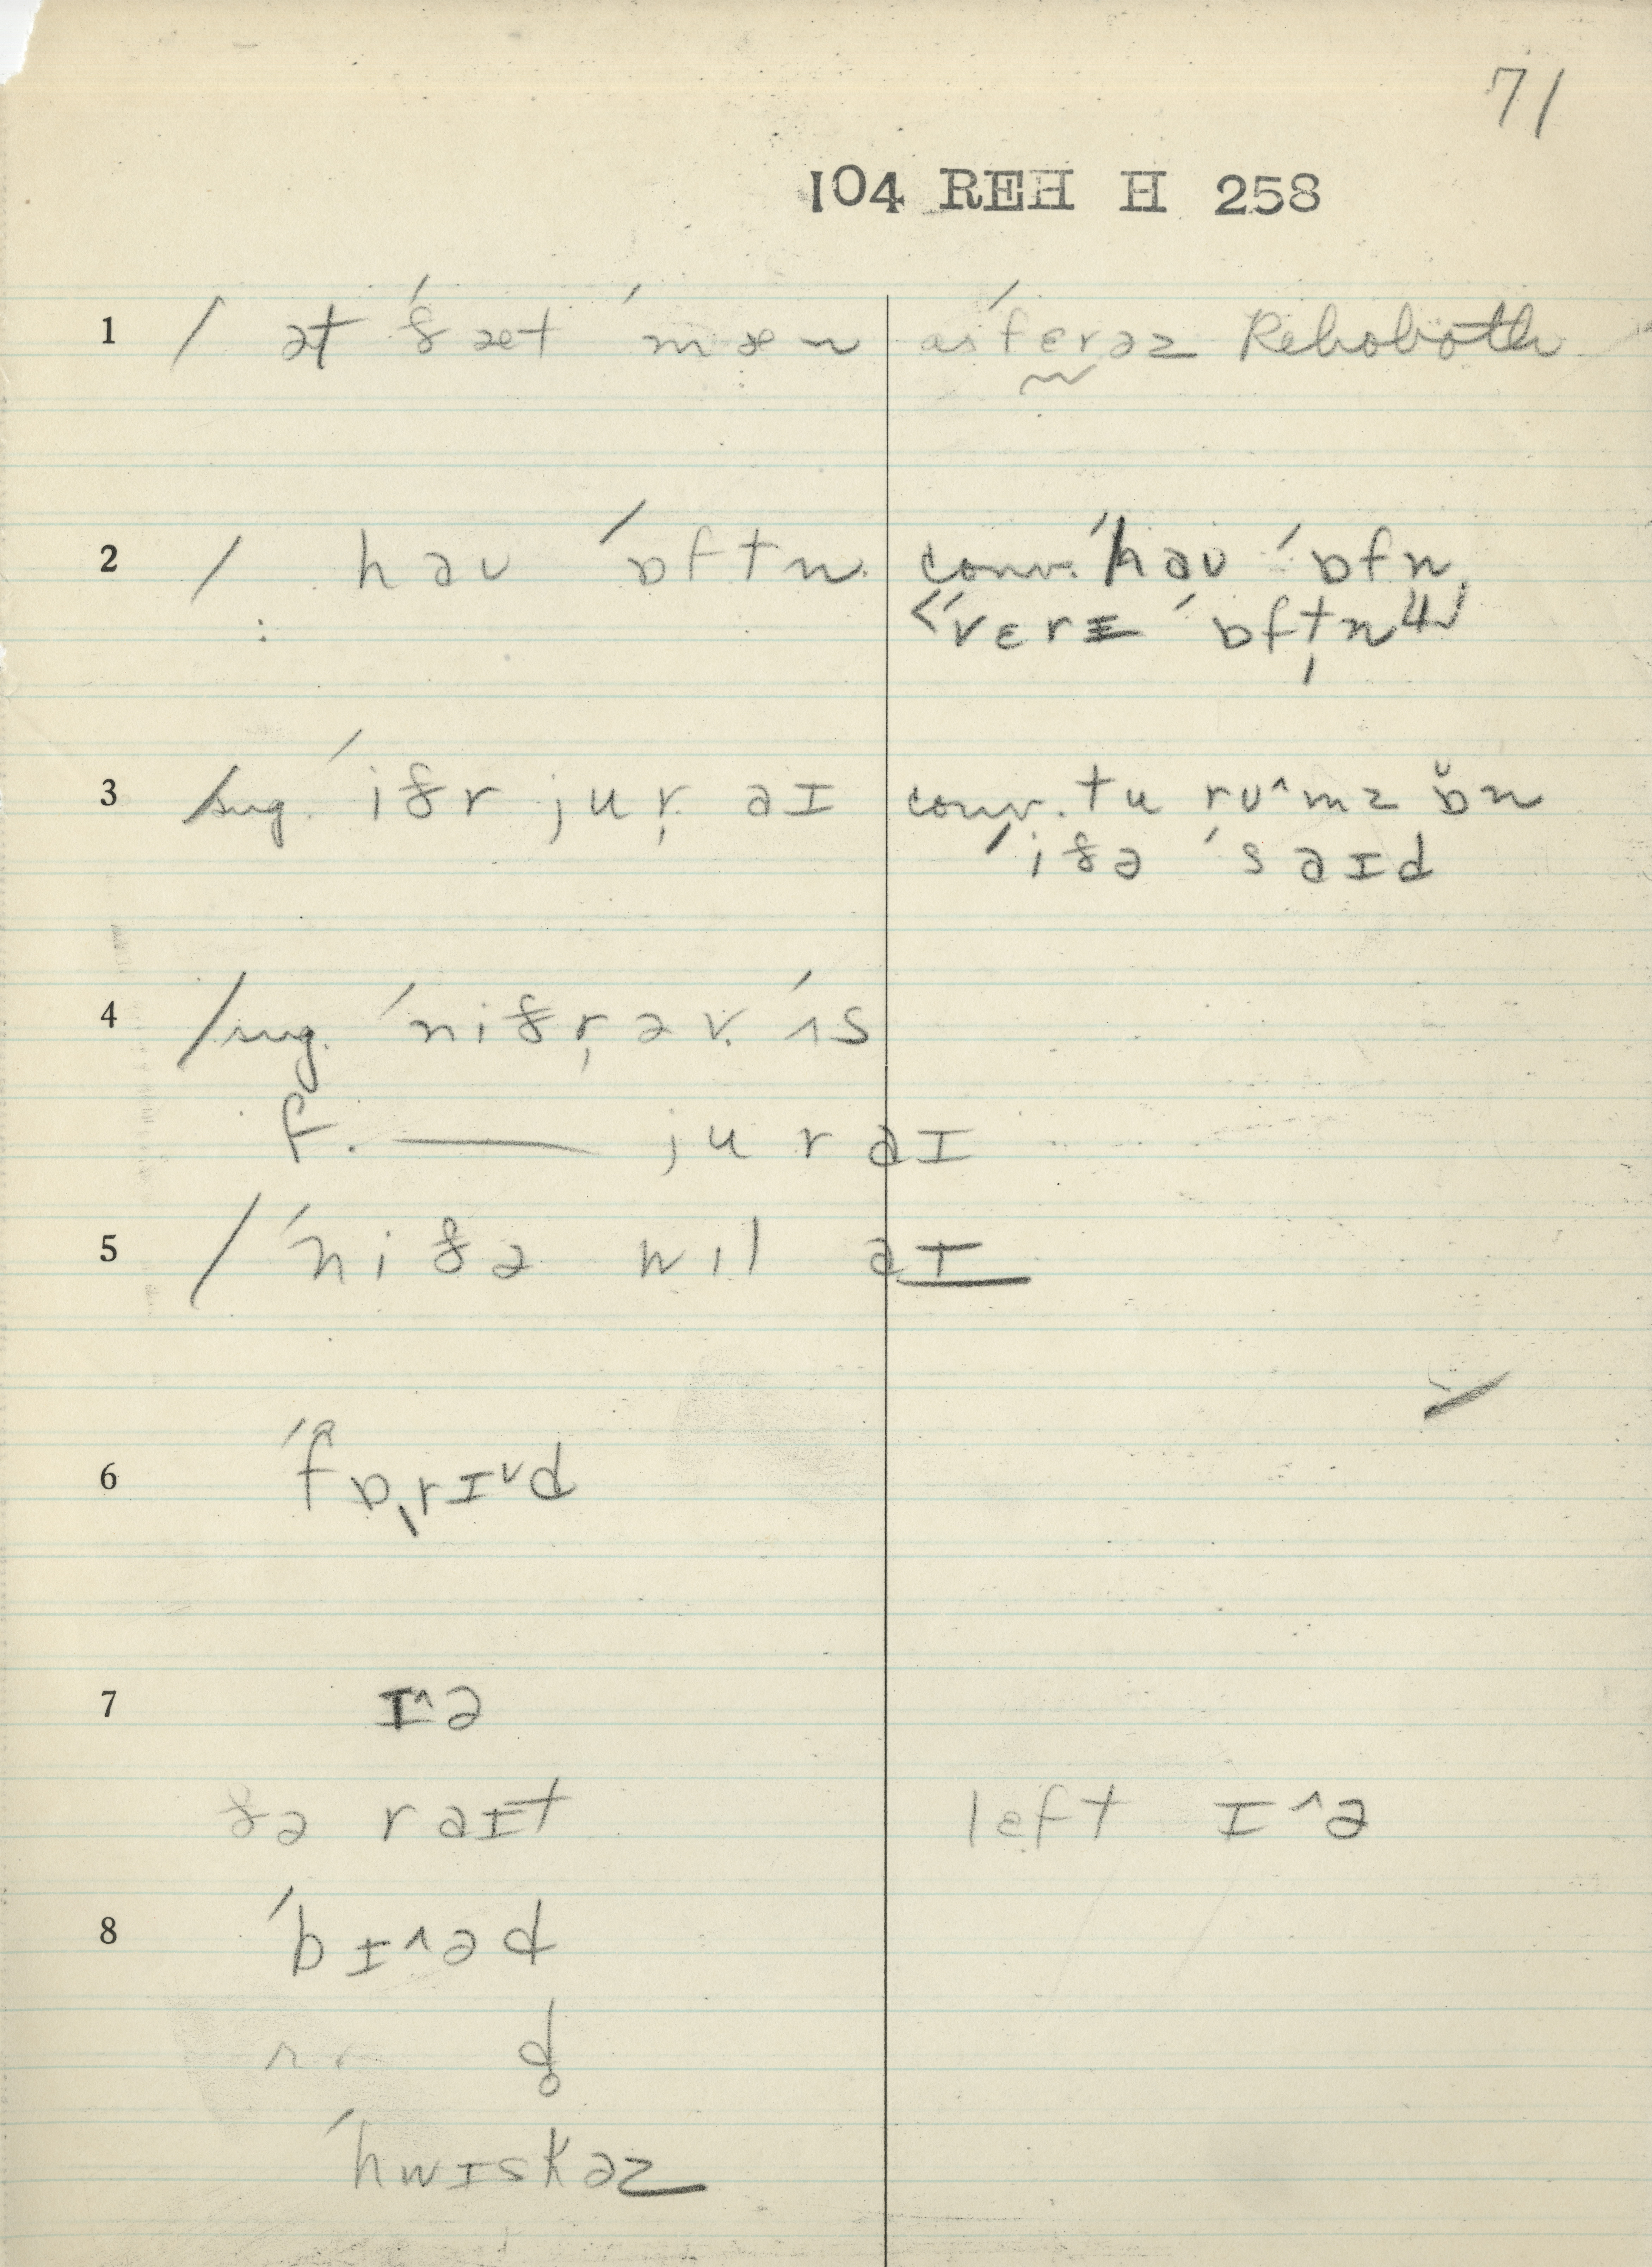 71
104 REH H 258
1 / ət ˈðæt ˈmæn əsˈfɛrəz Rehoboth
2 / haʊ ˈɒftn conv. ˈhaʊ ˈɒfn
"ˈvɛrɪ ˈɒftn"
3 /sug. ˈiðr jur aɪ conv. tu rʊ^mz ɒ̆n
ˈiðə ˈsaɪd
4 /sug. ˈniðr əv ˈʌs
f. —— jur aɪ
5 / ˈniðə wɪl aɪ
6 ˈfɒˌrɪ˅d
7 ɪ^ə
ðə raɪt left ɪ^ə
8 ˈbɪ^əd
d̥
ˈhwɪskəz